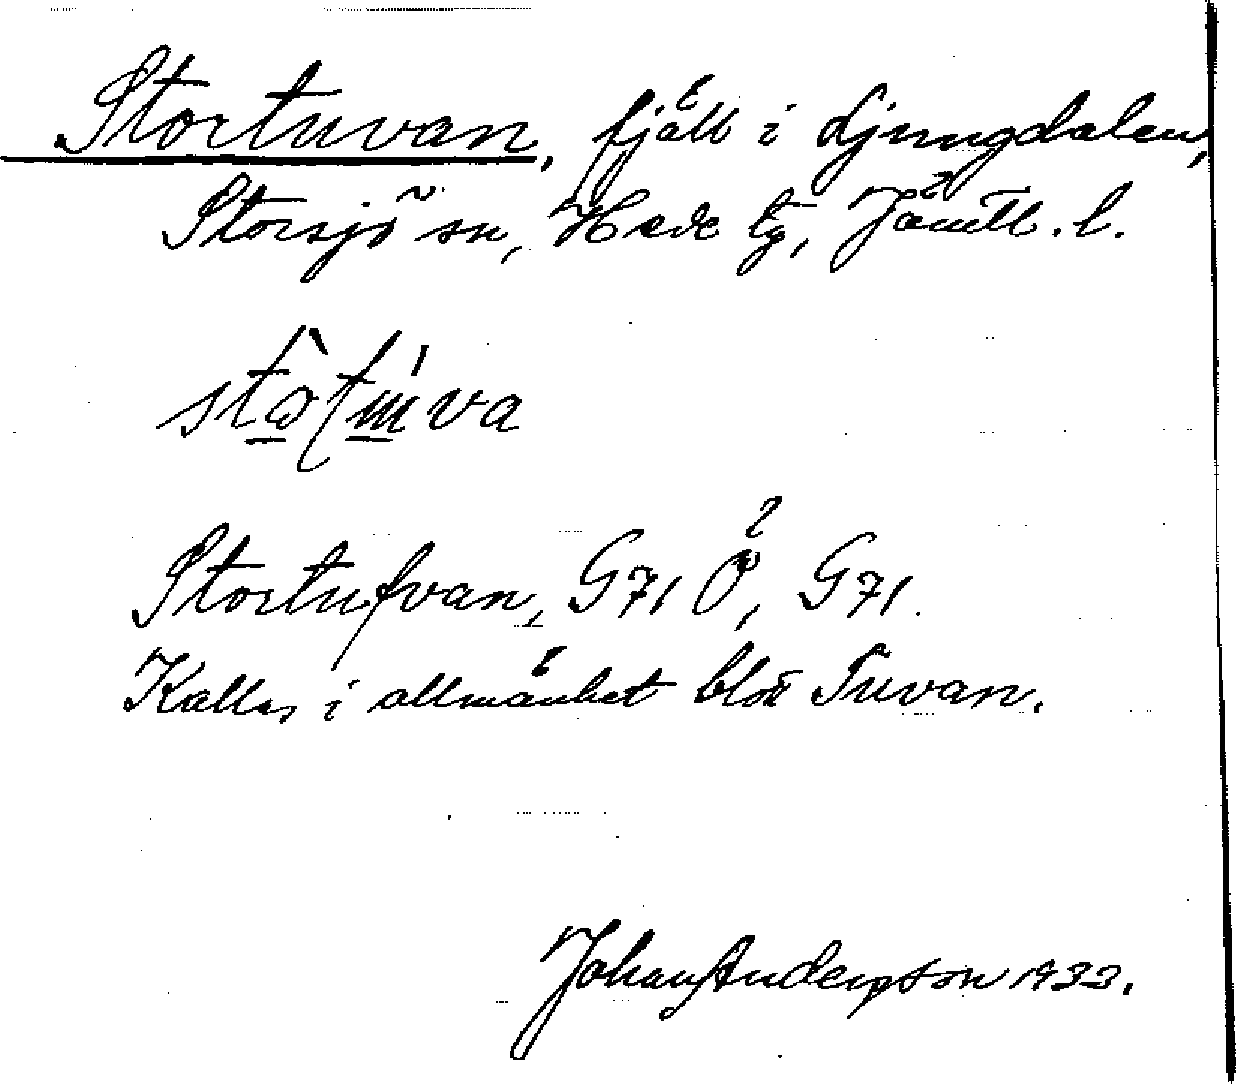 Stortuvan, fjäll i Ljungdalen,
Storsjö sn, Hede tg, Jämtl. l.
Stortufvan, G71 Ö, G71.
Kallas i allmänhet blott Tuvan.
Johan Anderson 1933.